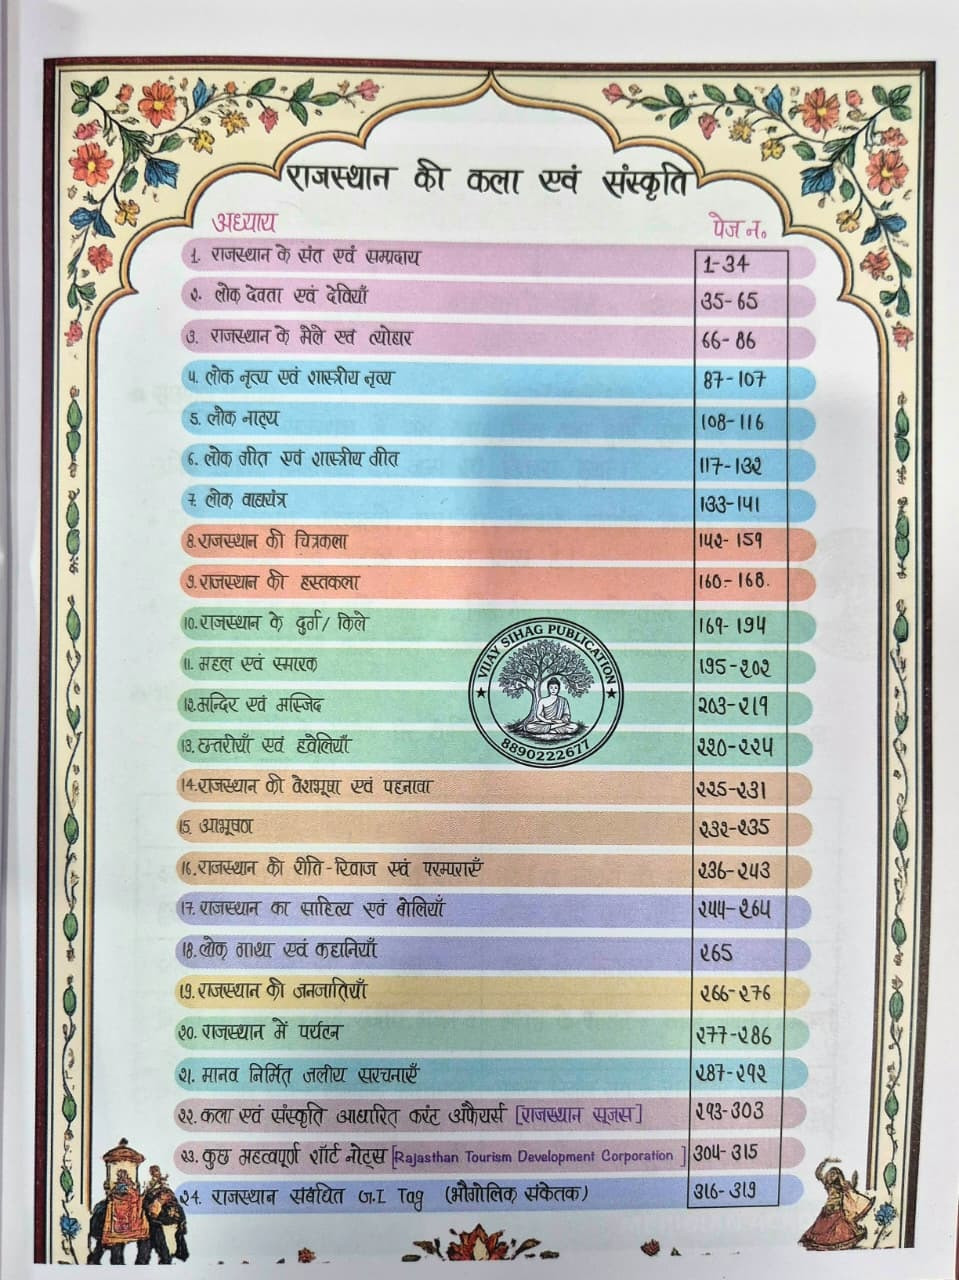 राजस्थान की कला एवं संस्कृति
अध्याय पेज न.
1. राजस्थान के संत एवं सम्प्रदाय 1-34
2. लोक देवता एवं देवियाँ 35-65
3. राजस्थान के मेले एवं त्योहार 66-86
4. लोक नृत्य एवं शास्त्रीय नृत्य 87-107
5. लोक नाट्य 108-116
6. लोक गीत एवं शास्त्रीय गीत 117-132
7. लोक वाद्ययंत्र 133-141
8. राजस्थान की चित्रकला 142-159
9. राजस्थान की हस्तकला 160-168.
10. राजस्थान के दुर्ग/किले 169-194
11. महल एवं स्मारक 195-202
12. मन्दिर एवं मस्जिद 203-219
13. छतरीयाँ एवं हवेलियाँ 220-224
14. राजस्थान की वेशभूषा एवं पहनावा 225-231
15. आभूषण 232-235
16. राजस्थान की रीति-रिवाज एवं परम्पराएँ 236-243
17. राजस्थान का साहित्य एवं बोलियाँ 244-264
18. लोक गाथा एवं कहानियाँ 265
19. राजस्थान की जनजातियाँ 266-276
20. राजस्थान में पर्यटन 277-286
21. मानव निर्मित जलीय सरचनाएँ 287-292
22. कला एवं संस्कृति आधारित करंट अफैयर्स [राजस्थान सूजस] 293-303
23. कुछ महत्वपूर्ण शॉर्ट नोट्स [Rajasthan Tourism Development Corporation] 304-315
24. राजस्थान संबंधित G.I Tag (भौगोलिक संकेतक) 316-319
VIJAY SIHAG PUBLICATION
8890222677